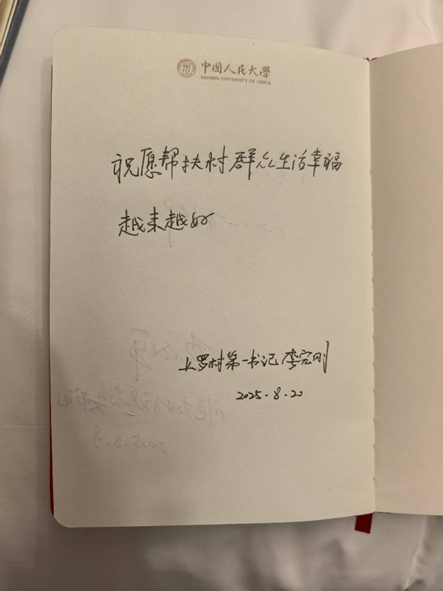 中国人民大学
RENMIN UNIVERSITY OF CHINA
祝愿帮扶村群众生活幸福
越来越好
上罗村第一书记 李宏刚
2025.8.20